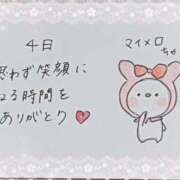 4日
思わず笑顔に
なる時間を
ありがとう
マイメロ
ちゃ